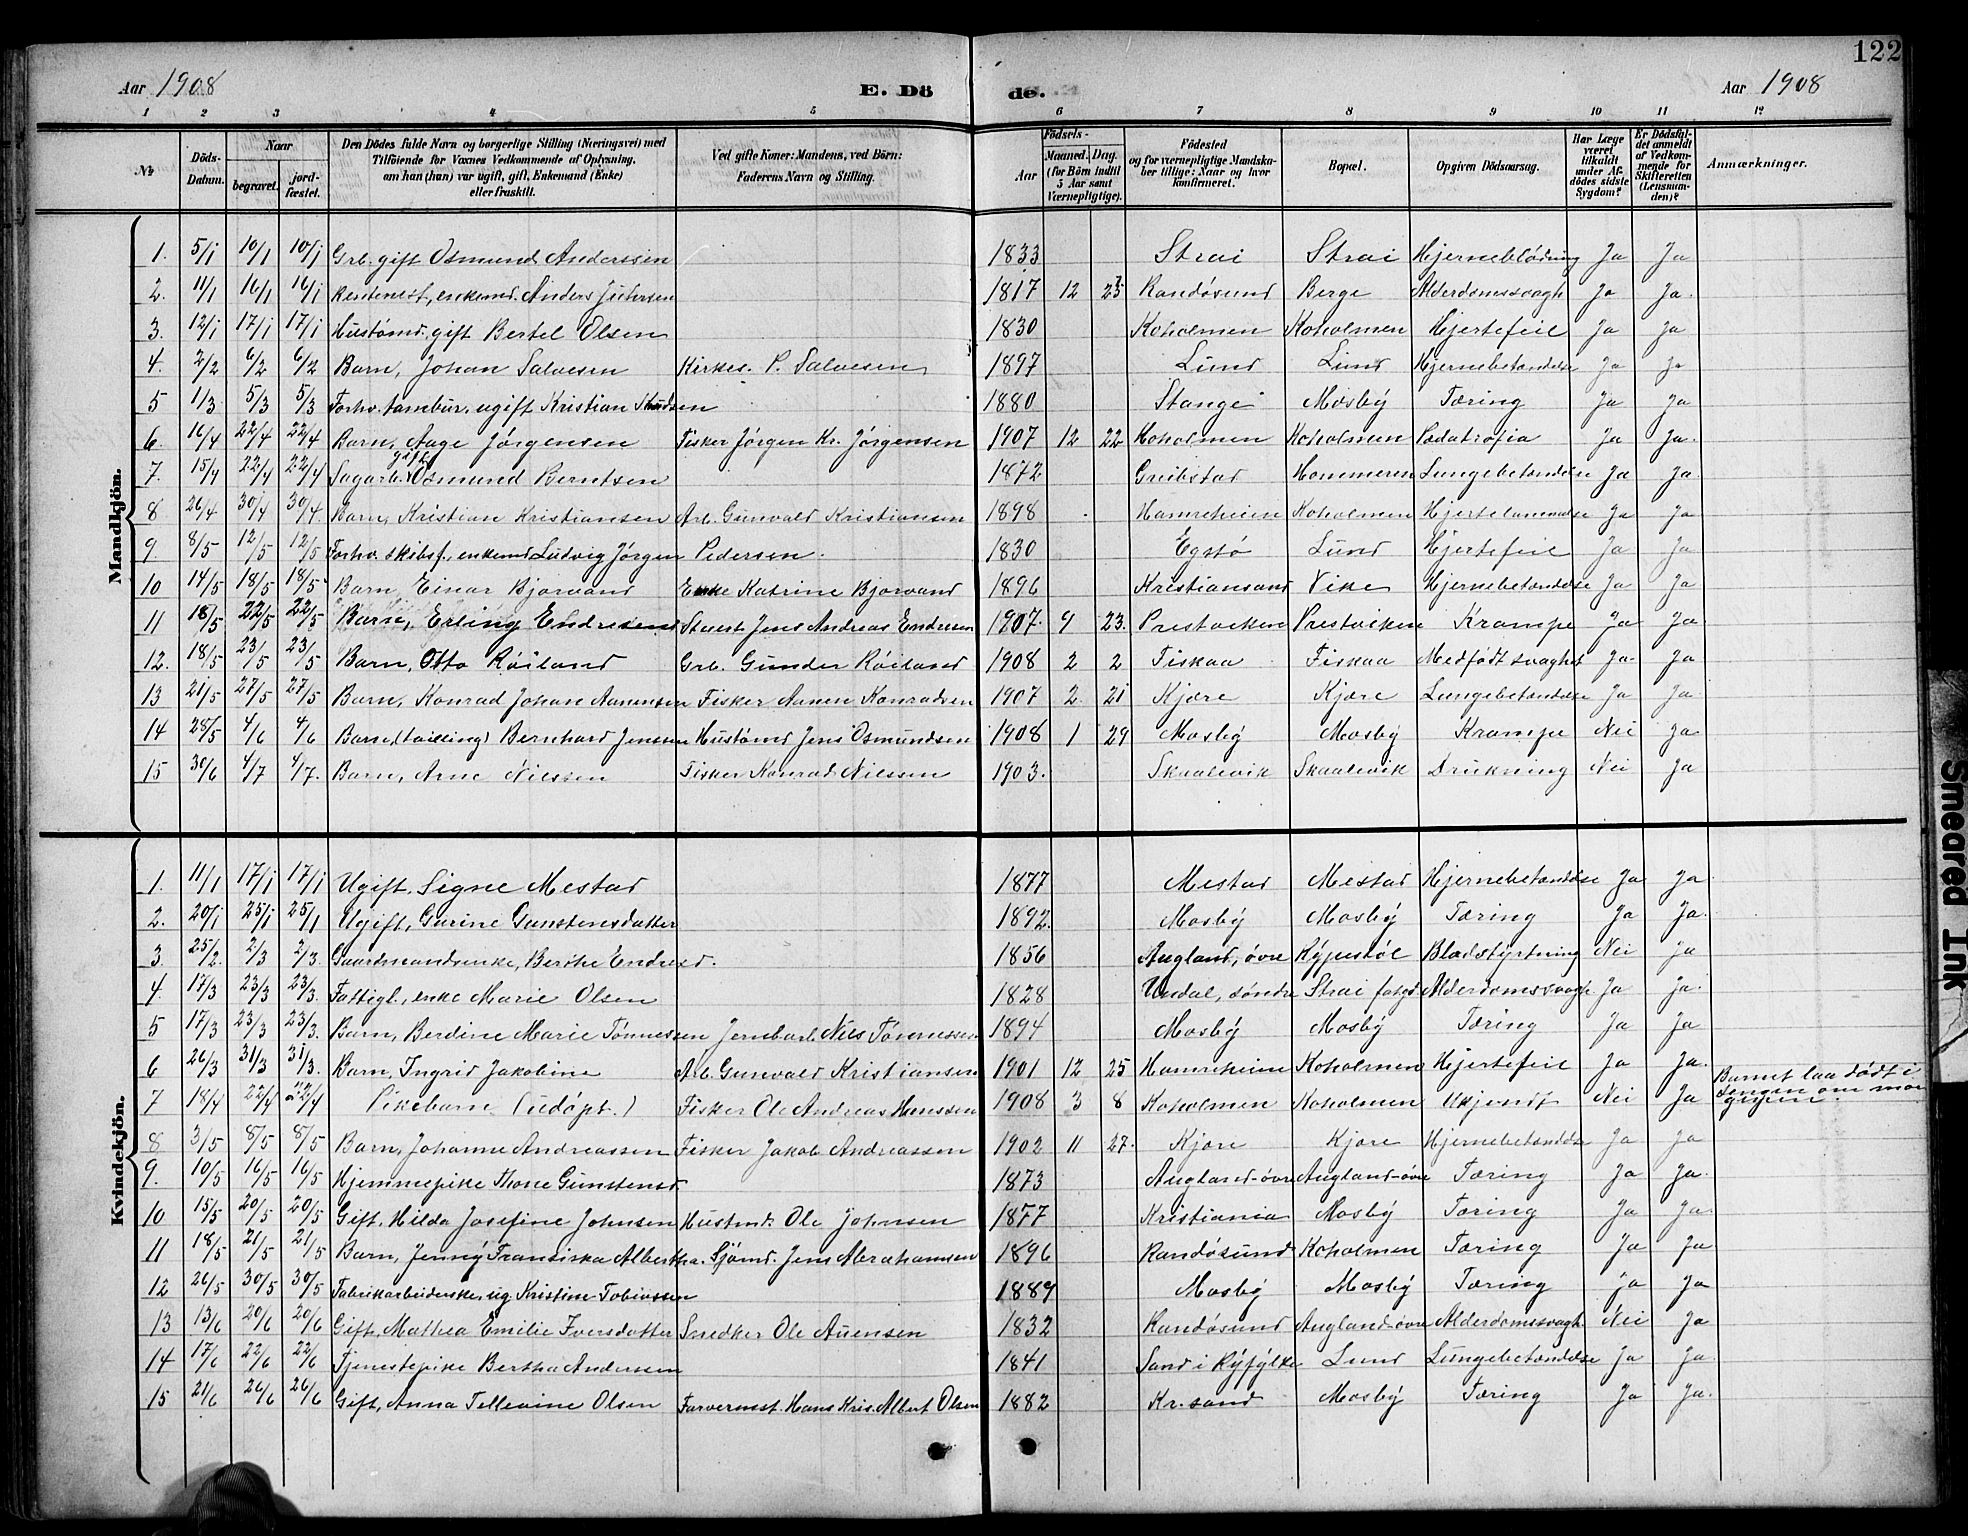 122
Aar 1908 E. Dö de. Aar 1908
1 2 3 4 5 6 7 8 9 10 11 12
№ Döds-Datum. Naar begravet. jord-fæstet. Den Dödes fulde Navn og borgerlige Stilling (Næringsvei) med Tilföiende for Voxnes Vedkommende af Oplysning, om han (hun) var ugift, gift, Enkemand (Enke) eller fraskilt. Ved gifte Koner: Mandens, ved Börn: Faderens Navn og Stilling. Födsels- Aar Maaned. Dag. (for Börn indtil 5 Aar samt Værnepligtige). Födested og for værnepligtige Mandskaber tillige: Naar og hvor konfirmeret. Bopæl. Opgiven Dödsaarsag. Har Læge været tilkaldt under Afdödes sidste Sygdom? Er Dödsfaldet anmeldt af Vedkommende for Skifteretten (Lensmanden)? Anmærkninger.
Mandkjön.
1. 5/1 10/1 10/1 Grb. gift Osmund Anderssen 1833 Strai Strai Hjerneblødning Ja Ja
2. 11/1 16/1 16/1 Rentenist, enkemd. Anders 1817 12 Randøsund Berge Alderdomssvagh Ja Ja.
3. 12/1 17/1 17/1 Hustømd. gift Bertel Olsen 1830 Koholmen Koholmen Hjertefeil Ja Ja
4. 2/2 6/2 6/2 Barn, Johan Salvesen Kirkes. P. Salvesen 1897 Lund Lund Hjernebetændelse Ja Ja
5 1/3 5/3 5/3 Forhv. tambur, ugift Kristian 1880 Stange Mosby Tæring Ja Ja
6. 16/4 22/4 22/4 Barn, Aage Jørgensen Fisker Jørgen Kr. Jørgensen 1907 12 22 Koholmen Koholmen Pædatrofia Ja Ja.
7. 15/4 22/4 22/4 Sagarb. gift Osmund Berntsen 1872 Greibstad Hommeren Lungebetændelse Ja Ja.
8 26/4 30/4 30/4. Barn, Kristian Kristiansen Arb. Gunvald Kristiansen 1898 Hamreheien Koholmen Hjertelammelse Ja Ja
9. 8/5 12/5 12/5 Forhv. skibsf., enkemd Ludvig Jørgen Pedersen. 1830 Egstø Lund Hjertefeil Ja Ja
10 14/5 18/5 18/5 Barn, Einar Bjorvand Enke Katrine Bjorvand 1896 Kristiansand Vike Hjernebetændelse Ja Ja
11 18/5 22/5 22/5 Barn, Erling Endresen Stuert Jens Andreas Endresen 1907. 9 23. Prestviken Prestviken Krampe Ja Ja
12. 18/5 23/5 23/5 Barn, Otto Røiland Grb. Gunder Røiland 1908 2 2 Fiskaa Fiskaa Medfødt svaghet Ja Ja
13 21/5 27/5 27/5 Barn, Konrad Johan Aanensen Fisker Aanen Konradsen 1907 2 21 Kjære Kjære Lungebetændelse Ja Ja
14 28/5 4/6 4/6 Barn, (tvilling) Bernhard Jensen Hustømd Jens Osmundsen 1908 1 29 Mosby Mosby Krampe Nei Ja
15 30/6 4/7 4/7. Barn, Arne Nilssen Fisker Konrad Nilssen 1903. Skaalevik Skaalevik Drukning Nei Ja
Kvindekjön.
1. 11/1 17/1 17/1 Ugift, Signe Mestad 1877 Mestad Mestad Hjernebetændelse Ja Ja
2. 20/1 25/1 25/1 Ugift, Gurine Gunstensdatter 1892. Mosby Mosby Tæring Ja Ja.
3. 25/2 2/3 2/3. Gaardmandsenke, Berthe Endresd. 1856 Augland, øvre Rypestøl Blodstyrtning Nei Ja
4. 17/3 23/3 23/3. Fattigl., enke Marie Olsen 1828 Undal, søndre Strai fatgd. Alderdomssvagh Ja Ja.
5 17/3 23/3 23/3. Barn, Berdine Marie Tønnessen Jernbarb. Nils Tønnessen 1894 Mosby Mosby Tæring Ja Ja
6 26/3 31/3 31/3. Barn, Ingrid Jakobine Arb. Gunvald Kristiansen 1901 12 25 Hamreheien Koholmen Hjertefeil Ja Ja.
7 18/4 22/4 22/4 Pikebarn (udøpt.) Fisker Ole Andreas Hanssen 1908 3 8 Koholmen Koholmen Ukjendt Nei Ja Barnet laa dødt i sengen om morgenen.
8 3/5 8/5 8/5 Barn, Johanne Andreassen Fisker Jakob Andreassen 1902 11 27. Kjære Kjære Hjernebetændelse Ja Ja
9. 10/5 16/5 16/5 Hjemmepike Thone Gunstensd. 1873 Augland-øvre Augland-øvre Tæring Ja Ja.
10 15/5 20/5 20/5 Gift, Hilda Josefine Johnsen Hustmd. Ole Johnsen 1877 Kristiania Mosby Tæring Ja Ja.
11 18/5 21/5 21/5 Barn, Jenny Franciska Albertha. Sjømd. Jens Abrahamsen 1896 Randøsund Koholmen Tæring Ja Ja
12 26/5 30/5 30/5 Fabrikarbeiderske, ug. Kristine Tobiassen 1889 Mosby Mosby Tæring Ja Ja
13 13/6 20/6 20/6 Gift, Mathea Emilie Iversdatter Snedker Ole Auensen 1832 Randøsund Augland-øvre Alderdomssvagh. Nei Ja
14 17/6 22/6 22/6 Tjenestepike Bertha Andersen 1841 Sand i Ryfylke Lund Lungebetændelse Ja Ja.
15 21/6 26/6 26/6 Gift, Anna Tellevine Olsen Farvermst. Hans Kris. Albert Olsen 1882 Kr.sand Mosby Tæring Ja Ja.
Smeared Ink